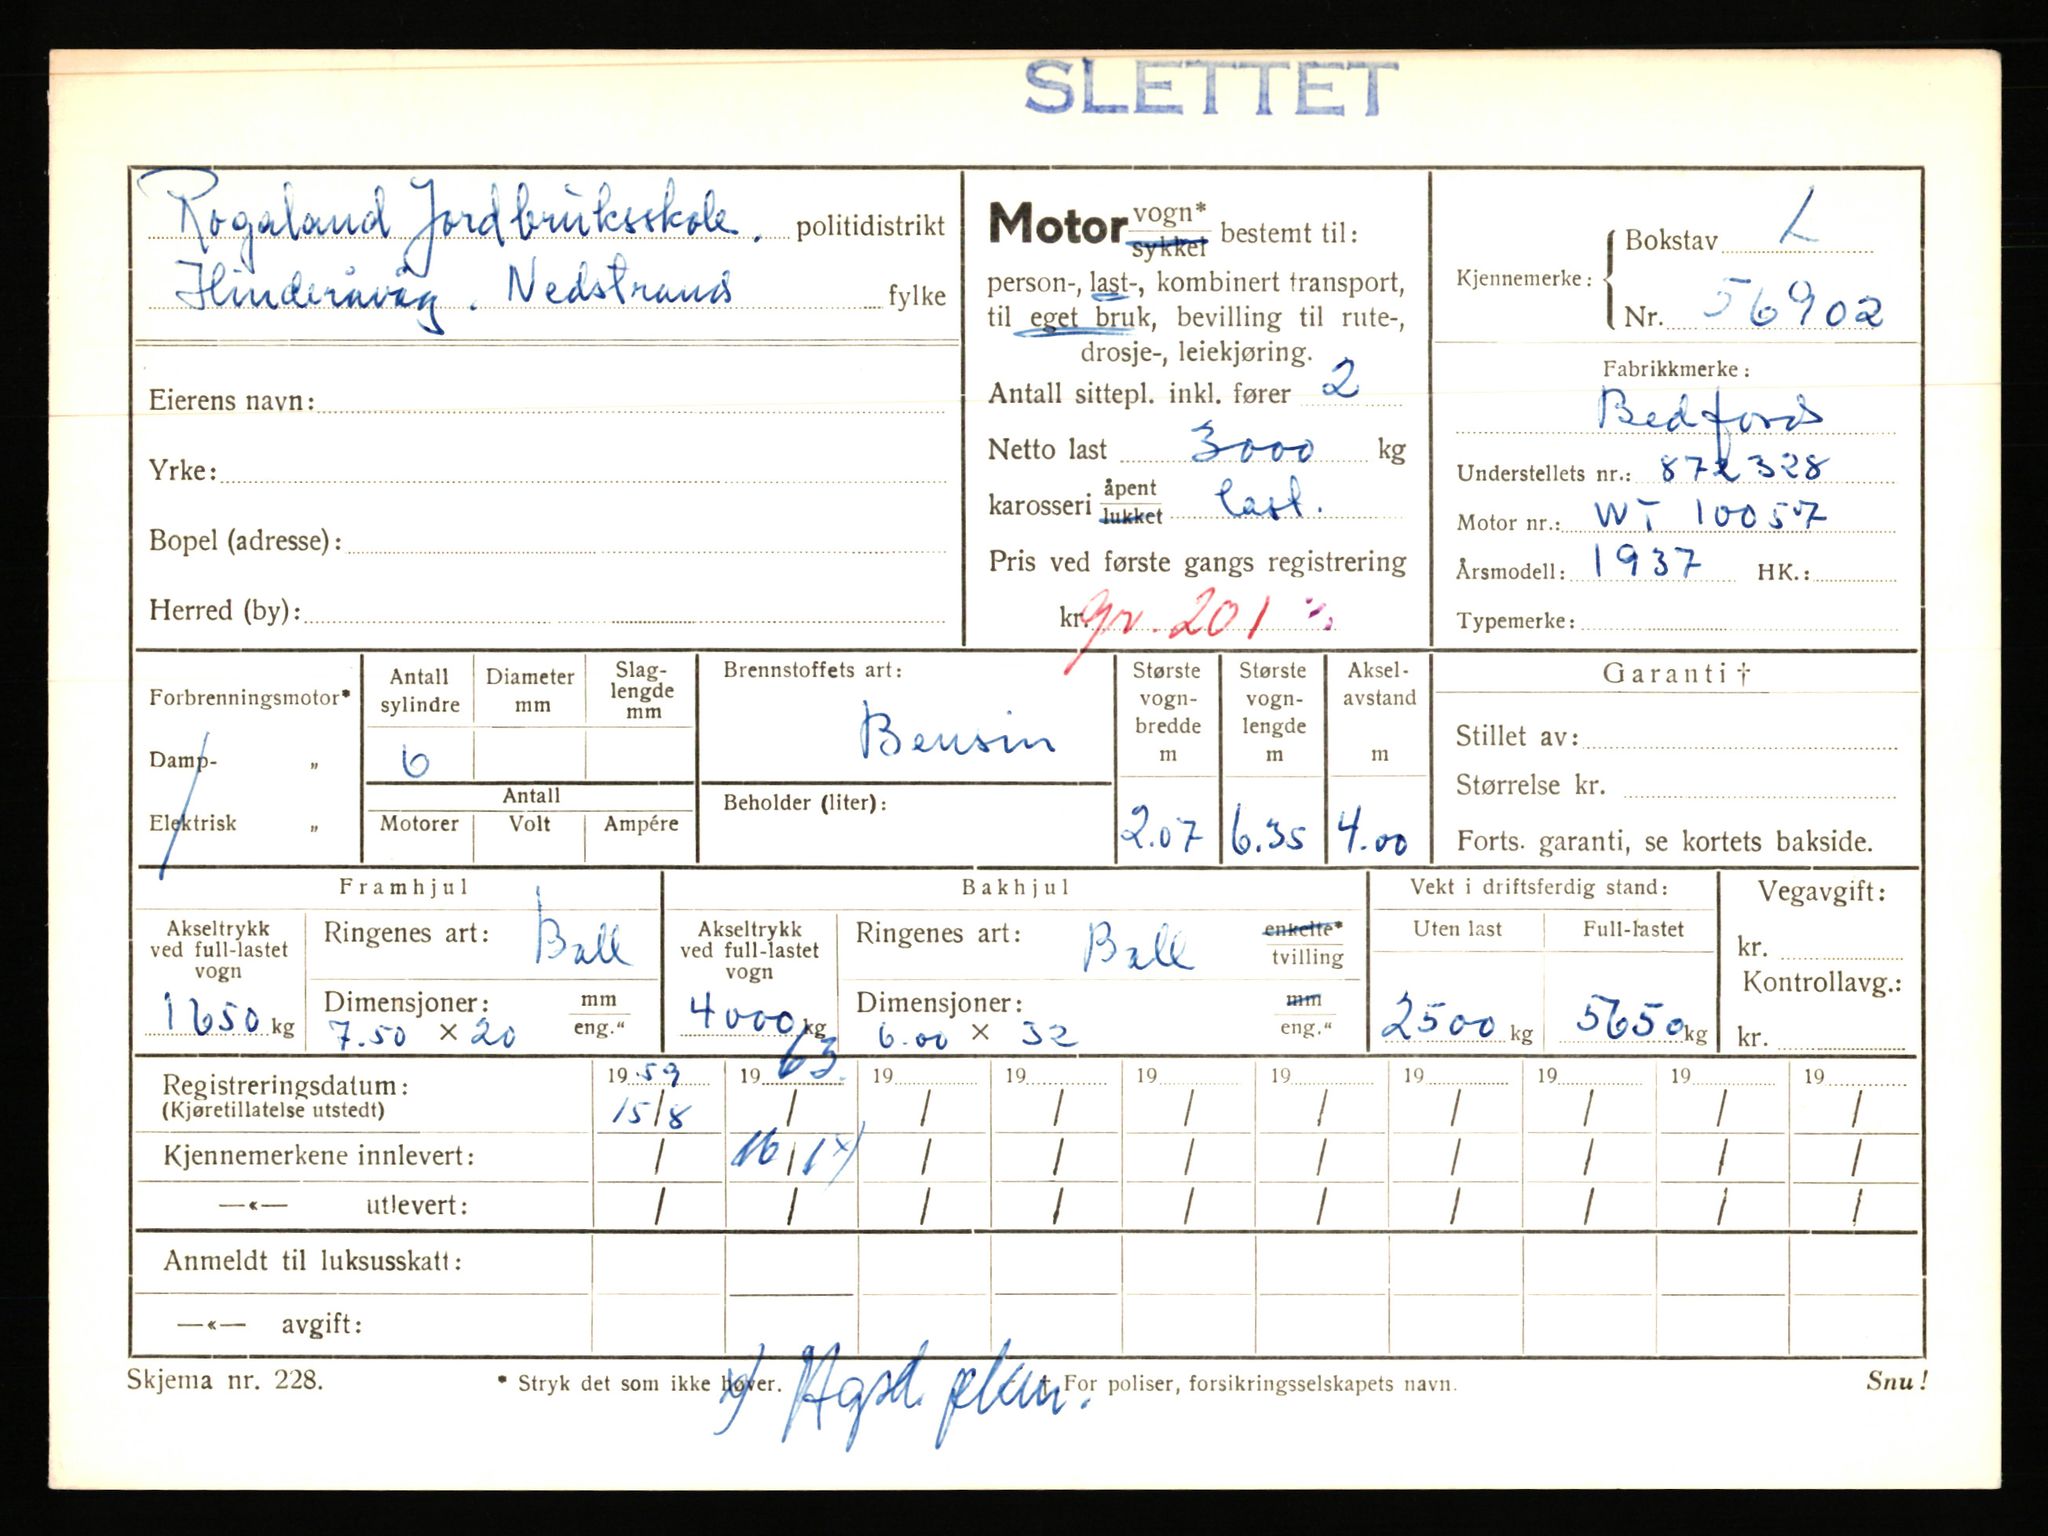 SLETTET
Rogaland Jordbruksskole. politidistrikt
Hinderåvåg. Nedstrand fylke
Eierens navn:
Yrke:
Bopel (adresse):
Herred (by):
Motor vogn* sykkel bestemt til:
person-, last-, kombinert transport,
til eget bruk, bevilling til rute-,
drosje-, leiekjøring.
Antall sittepl. inkl. fører 2
Netto last 3000 kg
karosseri åpent lukket last.
Pris ved første gangs registrering
kr. gr. 201
Kjennemerke: Bokstav L
Nr. 56902
Fabrikkmerke:
Bedford
Understellets nr.: 872328
Motor nr.: WT 10057
Årsmodell: 1937 HK.:
Typemerke:
Forbrenningsmotor*
Damp- „
Elektrisk „
Antall sylindre
Diameter mm
Slag-
lengde
mm
6
Antall
Motorer Volt Ampére
Brennstoffets art:
Bensin
Beholder (liter):
Største
vogn-
bredde
m
2.07
Største
vogn-
lengde
m
6.35
Aksel-
avstand
m
4.00
Garanti †
Stillet av:
Størrelse kr.
Forts. garanti, se kortets bakside.
Framhjul
Akseltrykk
ved full-lastet
vogn
1650 kg
Ringenes art: Ball
Dimensjoner: mm
7.50 × 20 eng."
Bakhjul
Akseltrykk
ved full-lastet
vogn
4000 kg
Ringenes art: Ball enkelte* tvilling
Dimensjoner: mm
6.00 × 32 eng."
Vekt i driftsferdig stand:
Uten last Full-lastet
2500 kg 5650 kg
Vegavgift:
kr.
Kontrollavg.:
kr.
Registreringsdatum: 19 59 19 63. 19 19 19 19 19 19 19 19
(Kjøretillatelse utstedt) 15/8 / / / / / / / / /
Kjennemerkene innlevert: / 16/1 x) / / / / / / / /
—«— utlevert: / / / / / / / / / /
Anmeldt til luksusskatt:
—«— avgift:
Skjema nr. 228.
* Stryk det som ikke høver.
† For poliser, forsikringsselskapets navn.
Snu!
x)